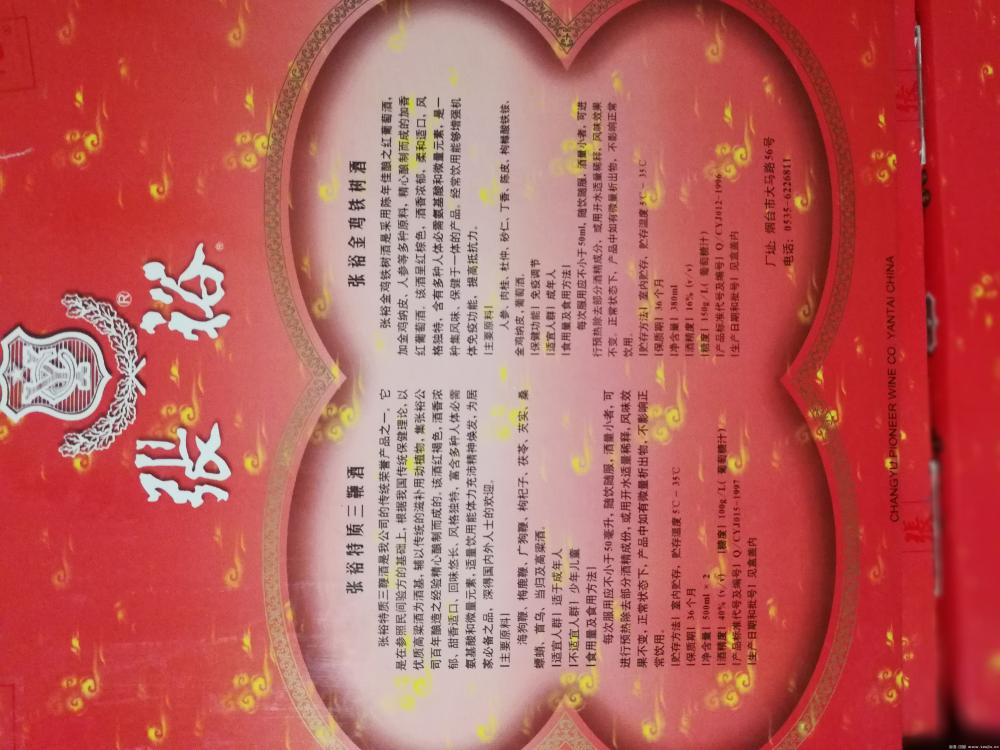 張裕
®
张裕特质三鞭酒
张裕特质三鞭酒是我公司的传统荣誉产品之一，它
是在参照民间验方的基础上，根据我国传统保健理论，以
优质高梁酒为酒基，辅以传统的滋补用动植物，集张裕公
司百年酿造之经验精心酿制而成的。该酒红褐色，酒香浓
郁、甜香适口、回味悠长、风格独特，富含多种人体必需
氨基酸和微量元素，适量饮用能体力充沛精神焕发，为居
家必备之品，深得国内外人士的欢迎。
[主要原料]
海狗鞭、梅鹿鞭、广狗鞭、枸杞子、茯苓、芡实、桑
螵蛸、首乌、当归及高梁酒。
[适宜人群] 适于成年人
[不适宜人群] 少年儿童
[食用量及食用方法]
每次服用应不小于50毫升，随饮随服，酒量小者，可
进行预热除去部分酒精成份，或用开水适量稀释，风味效
果不变，正常状态下，产品中如有微量析出物，不影响正
常饮用。
[贮存方法] 室内贮存，贮存温度 5℃－35℃
[保质期] 36个月
[净含量] 500ml×2
[酒精度] 40% (v/v) [糖度] 100g/L( 葡萄糖汁)
[产品标准代号及编号] Q/CYJ015-1997
[生产日期和批号] 见盒盖内
张裕金鸡铁树酒
张裕金鸡铁树酒是采用陈年佳酿之红葡萄酒，
加金鸡纳皮、人参等多种原料，精心酿制而成的加香
红葡萄酒。该酒呈红棕色，酒香浓郁，柔和适口，风
格独特，含有多种人体必需氨基酸和微量元素，是一
种集风味、保健于一体的产品。经常饮用能够增强机
体免疫功能，提高抵抗力。
[主要原料]
人参、肉桂、杜仲、砂仁、丁香、陈皮、枸橼酸铁铵、
金鸡纳皮，葡萄酒。
[保健功能] 免疫调节
[适宜人群] 成年人
[食用量及食用方法]
每次服用应不小于50ml，随饮随服，酒量小者，可进
行预热除去部分酒精成分，或用开水适量稀释，风味效果
不变，正常状态下，产品中如有微量析出物，不影响正常
饮用。
[贮存方法] 室内贮存，贮存温度 5℃－35℃
[保质期] 36个月
[净含量] 380ml
[酒精度] 16% (v/v)
[糖度] 150g/L( 葡萄糖汁)
[产品标准代号及编号] Q/CYJ012-1996
[生产日期和批号] 见盒盖内
厂址：烟台市大马路56号
电话：0535-6226811
CHANGYU PIONEER WINE CO YANTAI CHINA